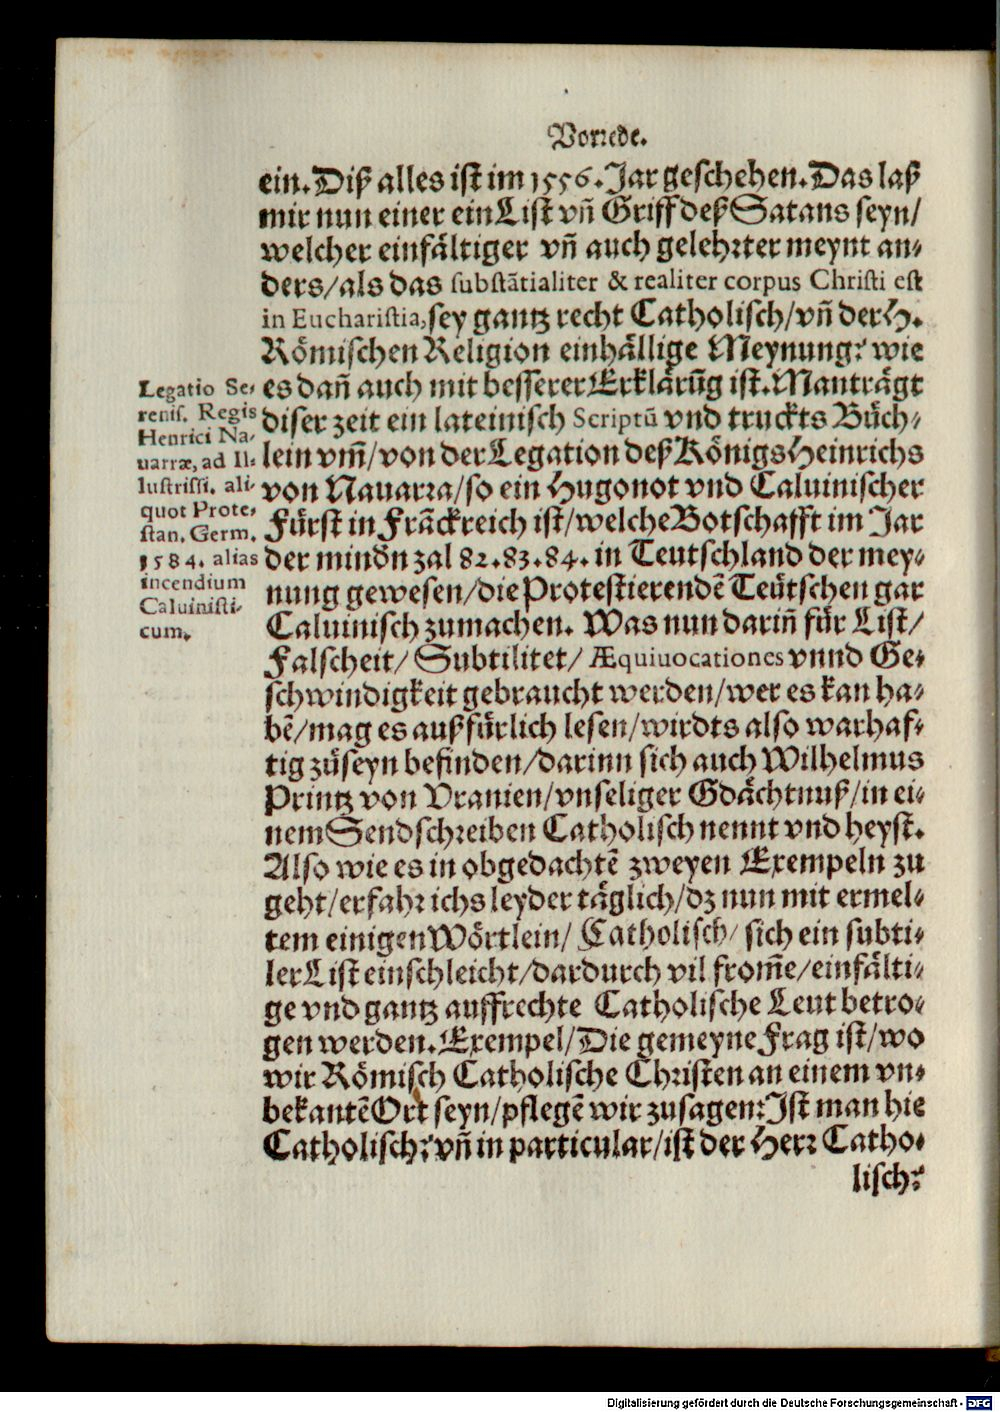 Vorrede.
ein. Diß alles ist im 1556. Jar geschehen. Das laß
mir nun einer ein List vñ Griff deß Satans seyn/
welcher einfältiger vñ auch gelehrter meynt an-
ders/als das substãtialiter & realiter corpus Christi est
in Eucharistia, sey gantz recht Catholisch/vñ der H.
Römischen Religion einhällige Meynung? wie
es dañ auch mit besserer Erklärũg ist. Man trägt
diser zeit ein lateinisch Scriptũ vnd truckts Büch-
lein vm̃/von der Legation deß Königs Heinrichs
von Nauarra/so ein Hugonot vnd Caluinischer
Fürst in Frãckreich ist/welche Botschafft im Jar
der mindn zal 82. 83. 84. in Teutschland der mey-
nung gewesen/die Protestierendẽ Teütschen gar
Caluinisch zumachen. Was nun dariñ für List/
Falscheit/ Subtilitet/ Æquiuocationes vnnd Ge-
schwindigkeit gebraucht werden/wer es kan ha-
bẽ/mag es außfürlich lesen/wirdts also warhaf-
tig züseyn befinden/darinn sich auch Wilhelmus
Printz von Vranien/vnseliger Gdächtnuß/in ei-
nem Sendschreiben Catholisch nennt vnd heyst.
Also wie es in obgedachtẽ zweyen Exempeln zu
geht/erfahr ichs leyder täglich/dz nun mit ermel-
tem einigen Wörtlein/ Catholisch/ sich ein subti-
ler List einschleicht/dardurch vil from̃e/einfälti-
ge vnd gantz auffrechte Catholische Leut betro-
gen werden. Exempel/Die gemeyne Frag ist/wo
wir Römisch Catholische Christen an einem vn-
bekantẽ Ort seyn/pflegẽ wir zusagen: Ist man hie
Catholisch? vñ in particular/ist der Herr Catho-
lisch?
Legatio Se-
renis. Regis
Henrici Na-
uarræ, ad Il-
lustrissi. ali-
quot Prote-
stan. Germ.
1584. alias
incendium
Caluinisti-
cum.
Digitalisierung gefördert durch die Deutsche Forschungsgemeinschaft - DFG